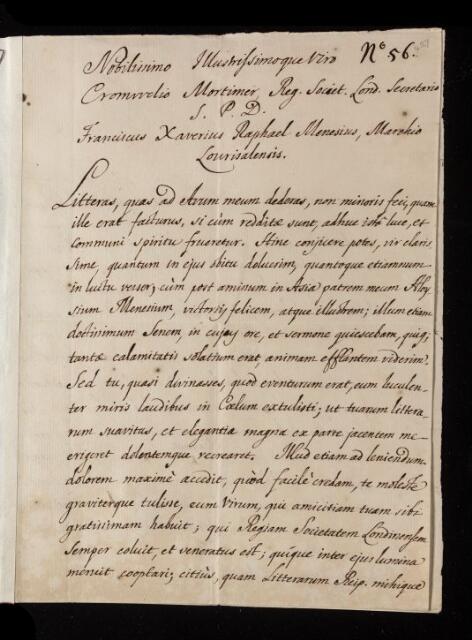 Nº 56.
Nobilissimo Illustrissimoque Viro
Cromvvelio Mortimer, Reg. Societ. Lond. Secretario
S. P. D.
Franciscus Xaverius Raphael Menesius, Marchio
Lourisalensis.
Litteras, quas ad Avum meum dederas, non minoris feci, quam
ille erat facturus, si cùm redditæ sunt, adhuc luce, et
communi spiritu frueretur. Hinc conjicere potes, vir claris
sime, quantum in ejus obitu doluerim, quantoque etiamnum
in luctu verser; cùm post amissum in Asia patrem meum Aloy
sium Menesium, victorijs felicem, atque illustrem; illum etiam
doctissimum Senem, in cujus ore, et sermone quiescebam, quiq;
tantæ calamitatis solatium erat, animam efflantem viderim.
Sed tu, quasi divinasses, quod eventurum erat, eum luculen
ter miris laudibus in Cœlum extulisti; ut tuarum littera
rum suavitas, et elegantia magna ex parte jacentem me
erigeret dolentemque recrearet. Illud etiam ad leniendum
dolorem maximè accedit, quòd facilè credam, te molestè
graviterque tulisse, eum Virum, qui amicitiam tuam sibi
gratissimam habuit; qui Regiam Societatem Londinensem
semper coluit, et veneratus est; quique inter ejus lumina
meruit cooptari; citiùs, quam Litterarum Reip. mihique